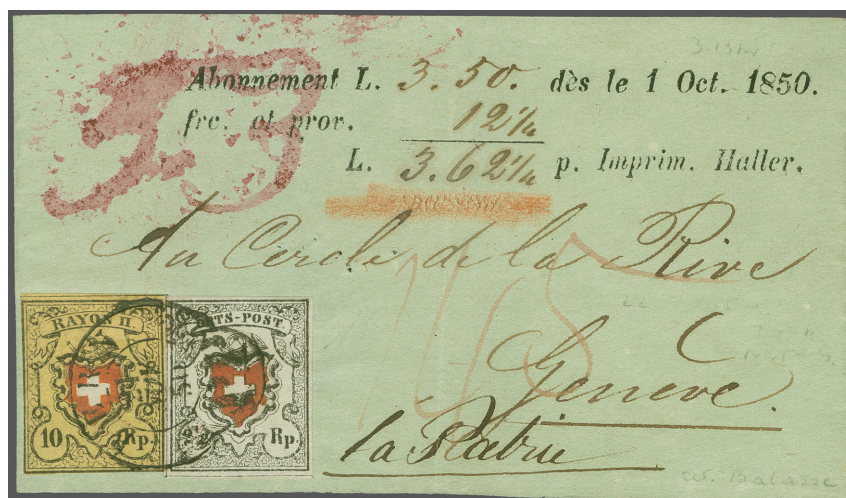 Abonnement L. 3.50. dès le 1 Oct. 1850.
frc. et prov. 12½
L. 3.62½ p. Imprim. Haller.
Au Cercle de la Rive
Genève.
la Patrie
RAYON II.
10 Rp.
RTS-POST.
2½ Rp.